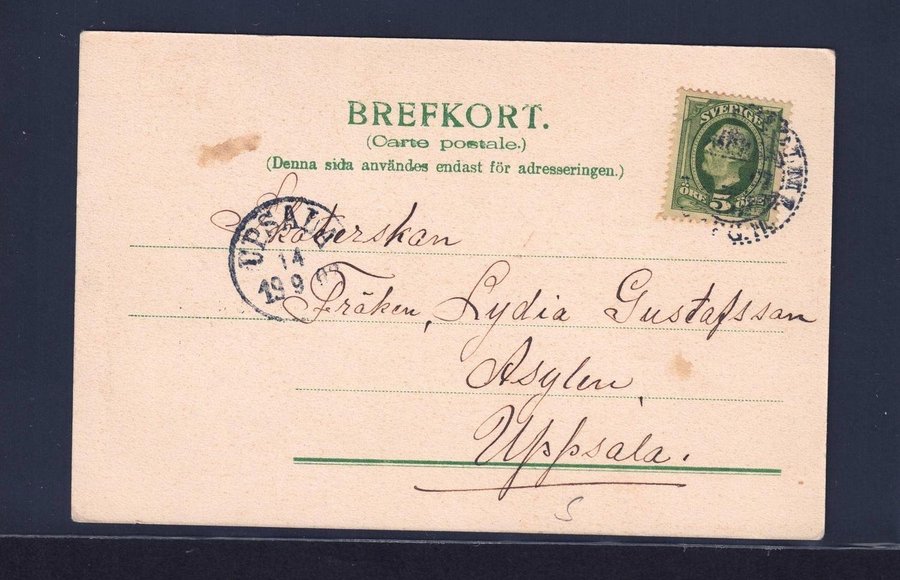 BREFKORT.
(Carte postale.)
(Denna sida användes endast för adresseringen.)
SVERIGE
ÖRE 5 ÖRE
UPSALA
14
19 9
Sköterskan
Fröken, Lydia Gustafsson
Asylen
Uppsala.